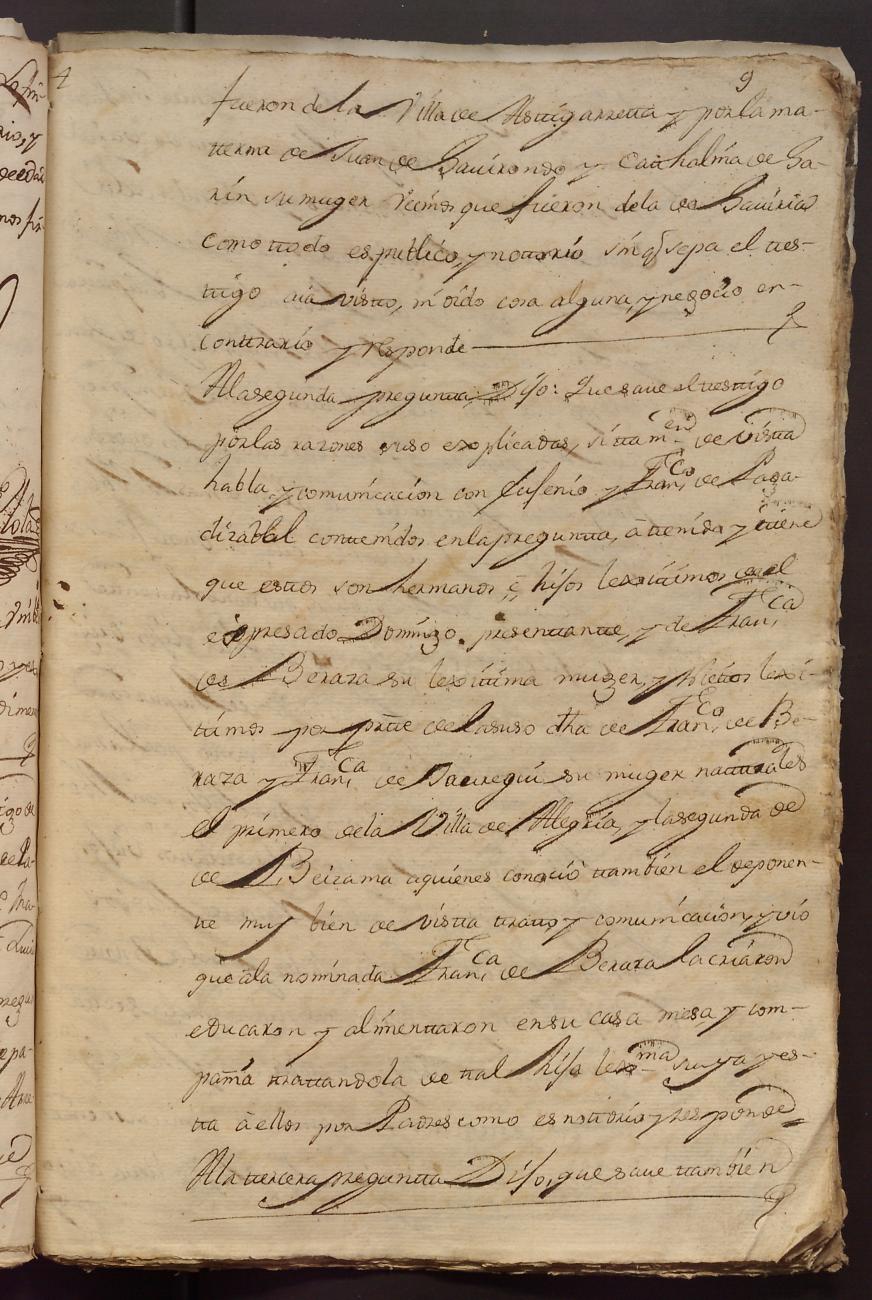 9
fueron de la Villa de Asttigarretta y por la ma-
tterna de Juan de Gavirondo y Catthalina de Ga-
rin su muger vecinos que fueron de la de Gaviria
como ttodo es publico, y nottorio sin q̃ sepa el ttes-
ttigo aia vistto, ni oido cosa alguna, y negocio en-
conttrario y responde
A la segunda preguntta Dijo: Que save el ttesttigo
por las razones suso explicadas, i ttam.en de vistta
habla y comunicacion con Eusenio y Fran.co de Paga-
dizabal conttenidos en la preguntta, à ttenido y ttiene
que esttos son hermanos è, hijos lexittimos del
expresado Domingo presenttante, y de Fran.ca
de Beraza su lexittima muger, y niettos lexi-
ttimos por partte de la suso dha de Fran.co de Be-
raza y Fran.ca de Jauregui su muger natturales
el primero de la Villa de Alegria, y la segunda de
de Beizama a quienes conoció ttambien el deponen-
tte muy bien de vistta tratto y comunicacion, y vio
que à la nominada Fran.ca de Beraza la criaron
educaron y alimenttaron en su casa mesa y com-
pañia trattandola de ttal hija lex.ma suya y es-
tta à ellos por Padres como es nottorio y responde
A la ttercera preguntta Dijo, que save ttambien